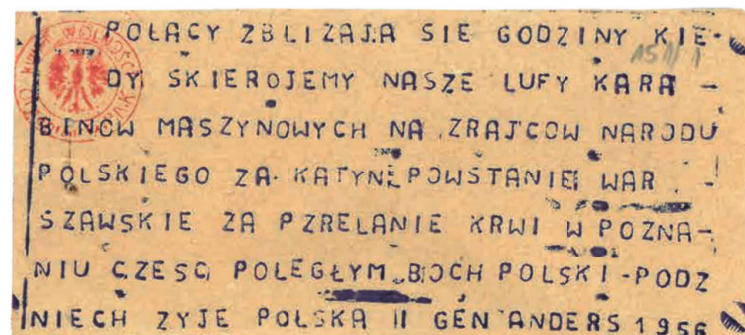 POLACY ZBLIZAJA SIE GODZINY KIE-
DY SKIEROJEMY NASZE LUFY KARA -
BINOW MASZYNOWYCH NA ZRAJCOW NARODU
POLSKIEGO ZA KATYN POWSTANIE WAR -
SZAWSKIE ZA PZRELANIE KRWI W POZNA-
NIU CZESC POLEGŁYM BOCH POLSKI-PODZ
NIECH ZYJE POLSKA II GEN ANDERS 1956